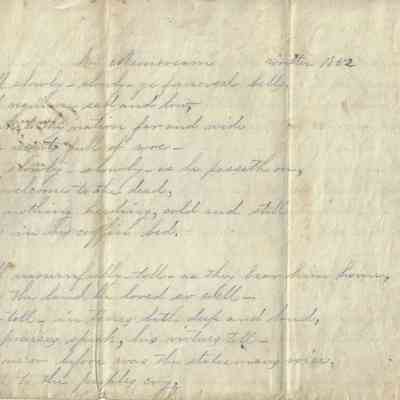 In Memoriam written 1852
slowly - slowly - ye funeral bells,
requiem sad and low,
to the nation far and wide
full of woe -
slowly - slowly - as he passeth on,
welcome to the dead,
nothing heeding, cold and still
in his coffin bed.
mournfully - toll - as they bear him home,
the land he loved so well -
toll - in tones both deep and loud,
praises speak, his virtues tell -
never before was the statesman's
to the peoples cry,